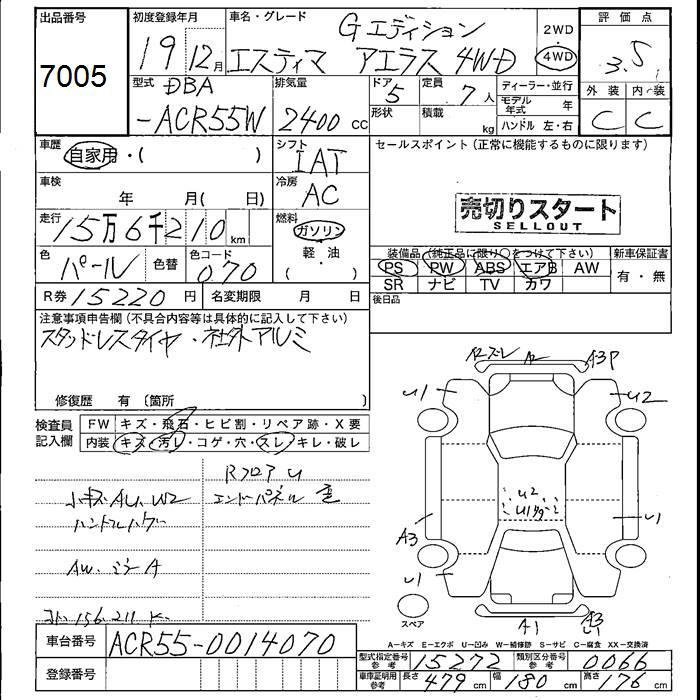 出品番号
7005
初度登録年月
19年12月
車名・グレード
Gエディション
エスティマ アエラス 4WD
2WD
・
4WD
評価点
3.5
外装 内装
C C
型式
DBA
-ACR55W
排気量
2400cc
ドア
5
形状
定員
7人
積載
kg
ディーラー・並行
モデル年式 年
ハンドル 左・右
車歴
自家用・( )
シフト
IAT
セールスポイント(正常に機能するものに限ります)
車検
年 月( 日)
冷房
AC
売切りスタート
SELLOUT
走行
15万6千210km
燃料
ガソリン
軽・油
( )
色
パール
色替
色コード
070
装備品(純正品に限り○をつけて下さい)
PS PW ABS エアB AW
SR ナビ TV カワ
新車保証書
有・無
R券 15220円
名変期限 月 日
後日品
注意事項申告欄(不具合内容等は具体的に記入して下さい)
スタッドレスタイヤ・社外アルミ
修復歴 有〔箇所 〕
検査員
記入欄
FW キズ・飛石・ヒビ割・リペア跡・X要
内装 キズ・汚レ・コゲ・穴・スレ・キレ・破レ
RフロアU
エンドパネル
AW.ミラーA
A2 A3P
U1 U2
U2
A3 U1
U1
スペア
A1 A3
U1
A-キズ E-エクボ U-凹み W-補修跡 S-サビ C-腐食 XX-交換済
車台番号 ACR55-0014070
登録番号
型式指定番号 参考 15272 類別区分番号 参考 0066
車庫証明用 参考 長さ 479cm 幅 180cm 高さ 176cm